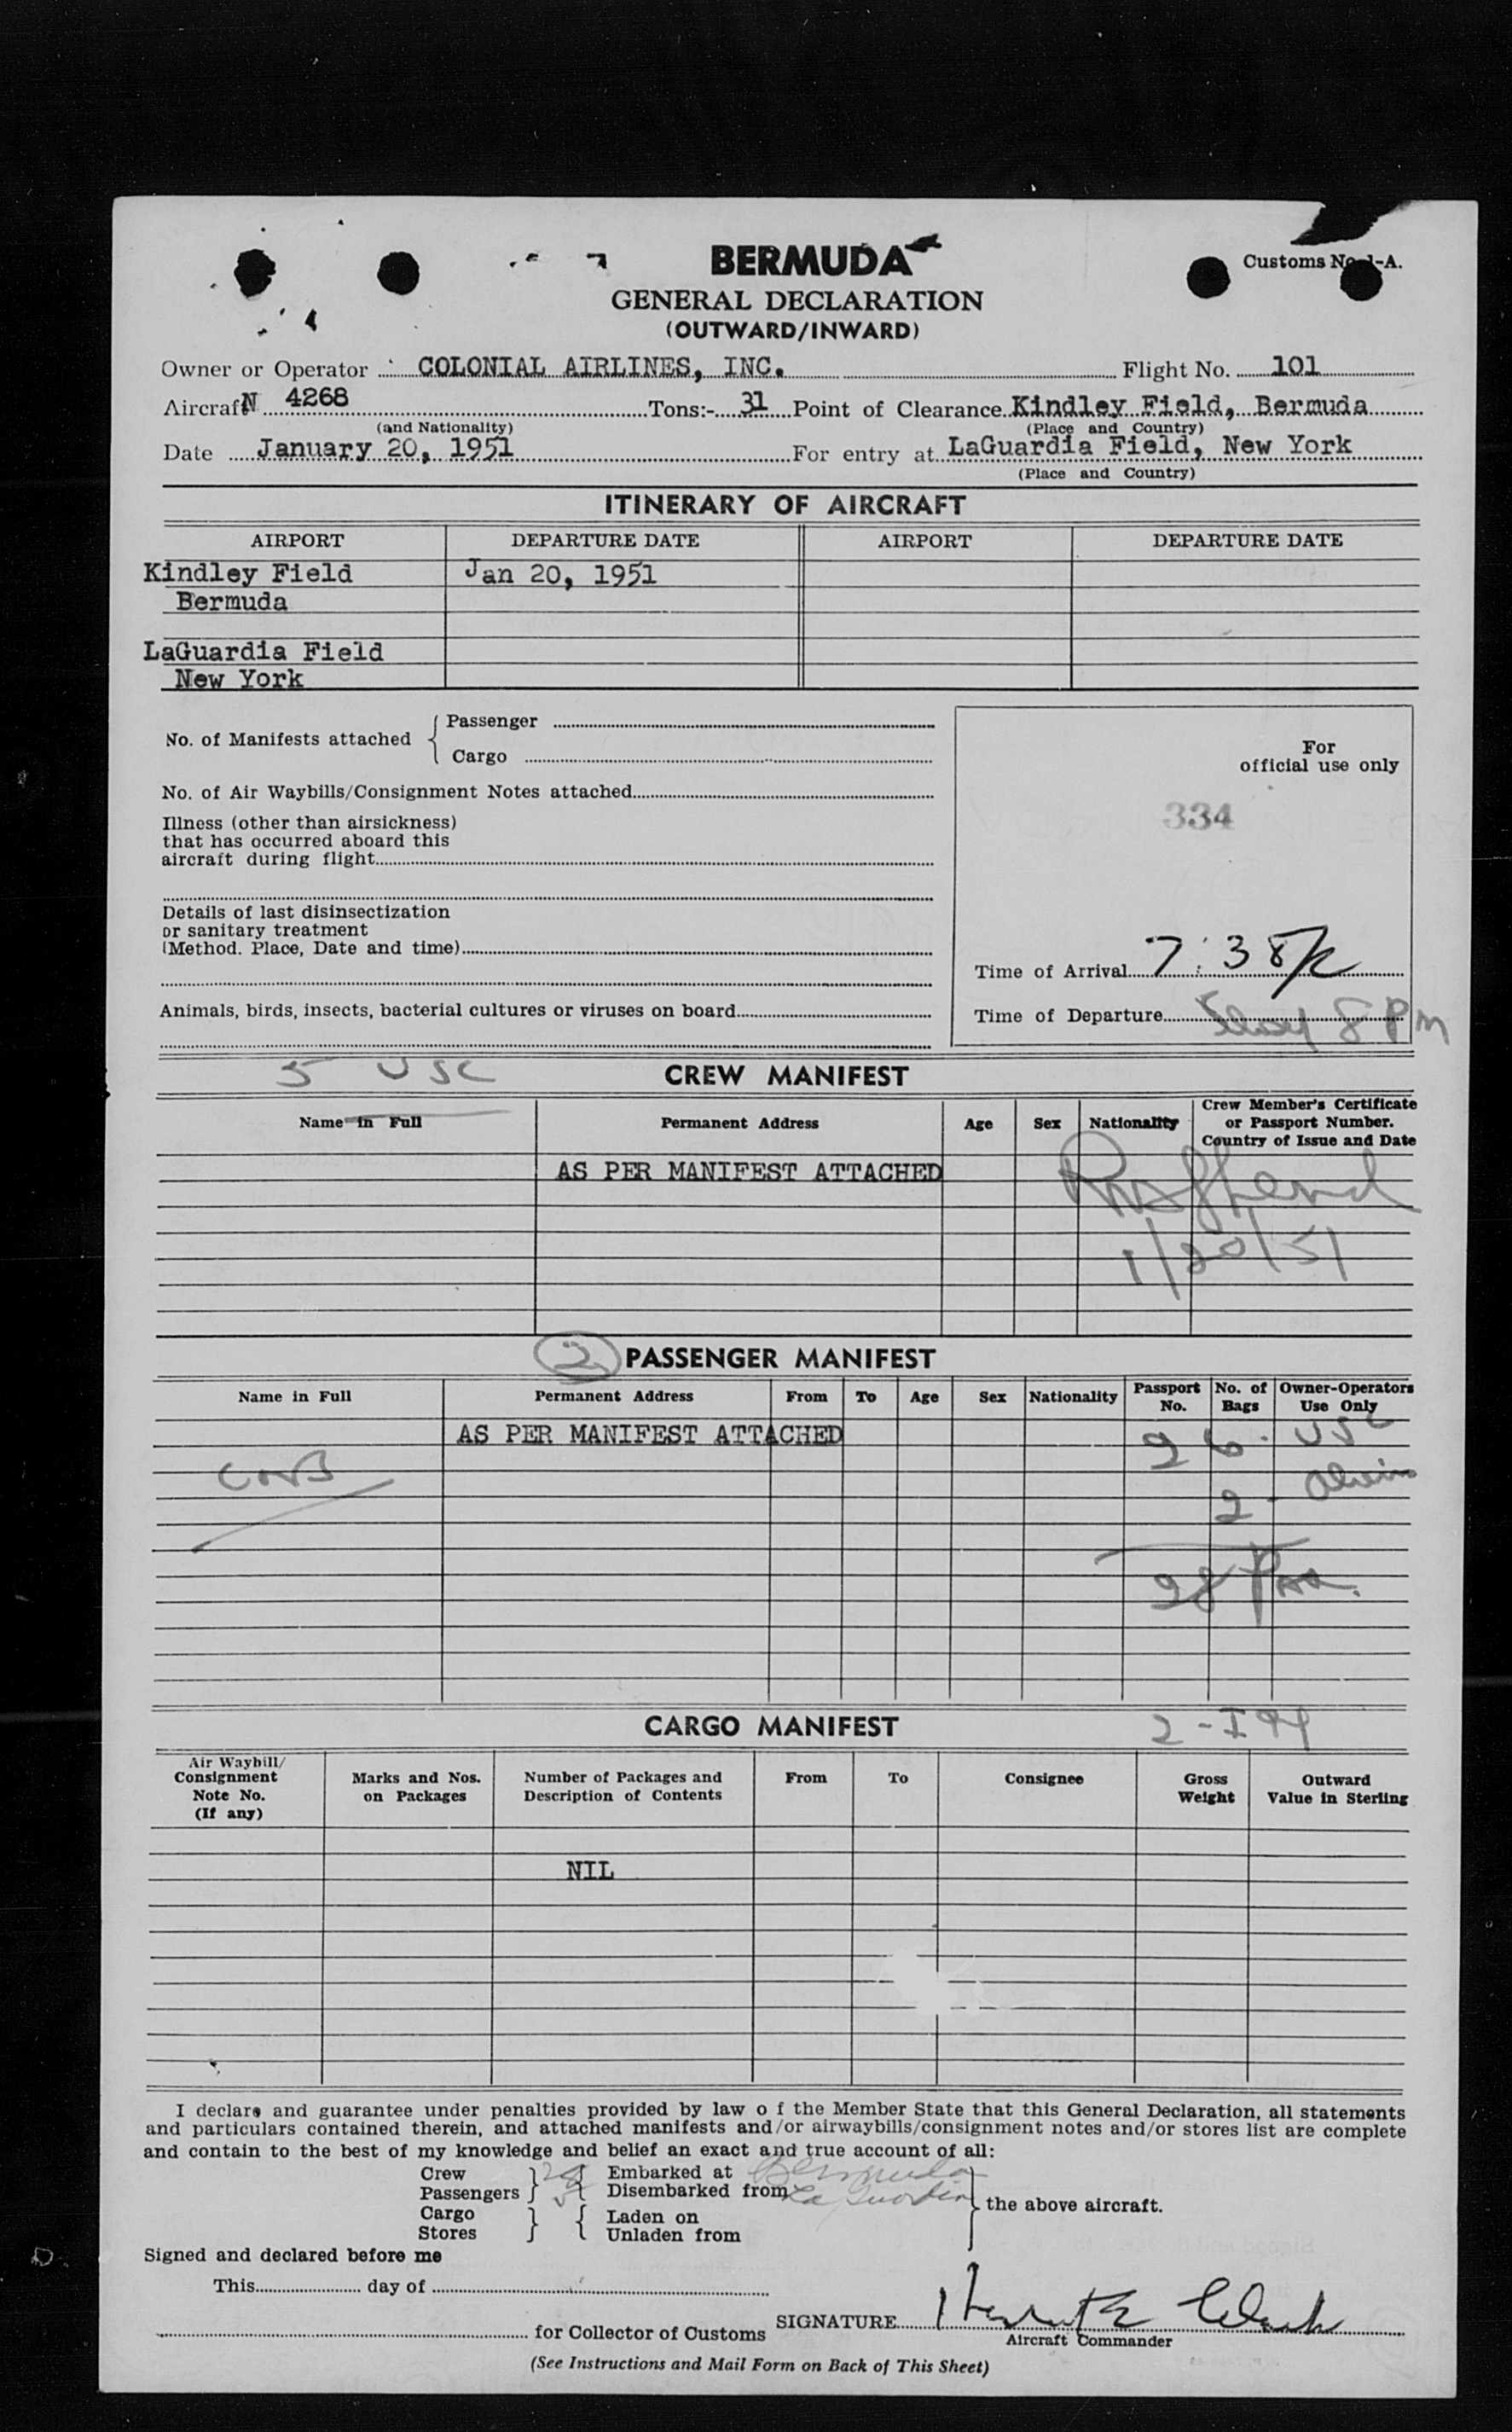 BERMUDA
Customs No. 1-A.
GENERAL DECLARATION
(OUTWARD/INWARD)
Owner or Operator COLONIAL AIRLINES, INC. Flight No. 101
Aircraft N 4268 Tons:- 31 Point of Clearance Kindley Field, Bermuda
(and Nationality) (Place and Country)
Date January 20, 1951 For entry at LaGuardia Field, New York
(Place and Country)
ITINERARY OF AIRCRAFT
AIRPORT DEPARTURE DATE AIRPORT DEPARTURE DATE
Kindley Field Jan 20, 1951
Bermuda
LaGuardia Field
New York
No. of Manifests attached { Passenger
Cargo
For
official use only
No. of Air Waybills/Consignment Notes attached
334
Illness (other than airsickness)
that has occurred aboard this
aircraft during flight
Details of last disinsectization
or sanitary treatment
(Method. Place, Date and time)
Time of Arrival 7:38 P
Animals, birds, insects, bacterial cultures or viruses on board
Time of Departure 8 PM
5 USC
CREW MANIFEST
Name in Full Permanent Address Age Sex Nationality Crew Member's Certificate
or Passport Number.
Country of Issue and Date
AS PER MANIFEST ATTACHED
1/20/51
2 PASSENGER MANIFEST
Name in Full Permanent Address From To Age Sex Nationality Passport No. No. of Bags Owner-Operators Use Only
AS PER MANIFEST ATTACHED 26 - USC
2 - Alien
28 Pax.
CARGO MANIFEST
2 - I 94
Air Waybill/
Consignment
Note No.
(If any)
Marks and Nos.
on Packages
Number of Packages and
Description of Contents
From To Consignee
Gross
Weight
Outward
Value in Sterling
NIL
I declare and guarantee under penalties provided by law o f the Member State that this General Declaration, all statements
and particulars contained therein, and attached manifests and/or airwaybills/consignment notes and/or stores list are complete
and contain to the best of my knowledge and belief an exact and true account of all:
Crew } 28 { Embarked at Bermuda
Passengers } 5 { Disembarked from La Guardia } the above aircraft.
Cargo } { Laden on
Stores } { Unladen from
Signed and declared before me
This day of
for Collector of Customs SIGNATURE
Aircraft Commander
(See Instructions and Mail Form on Back of This Sheet)